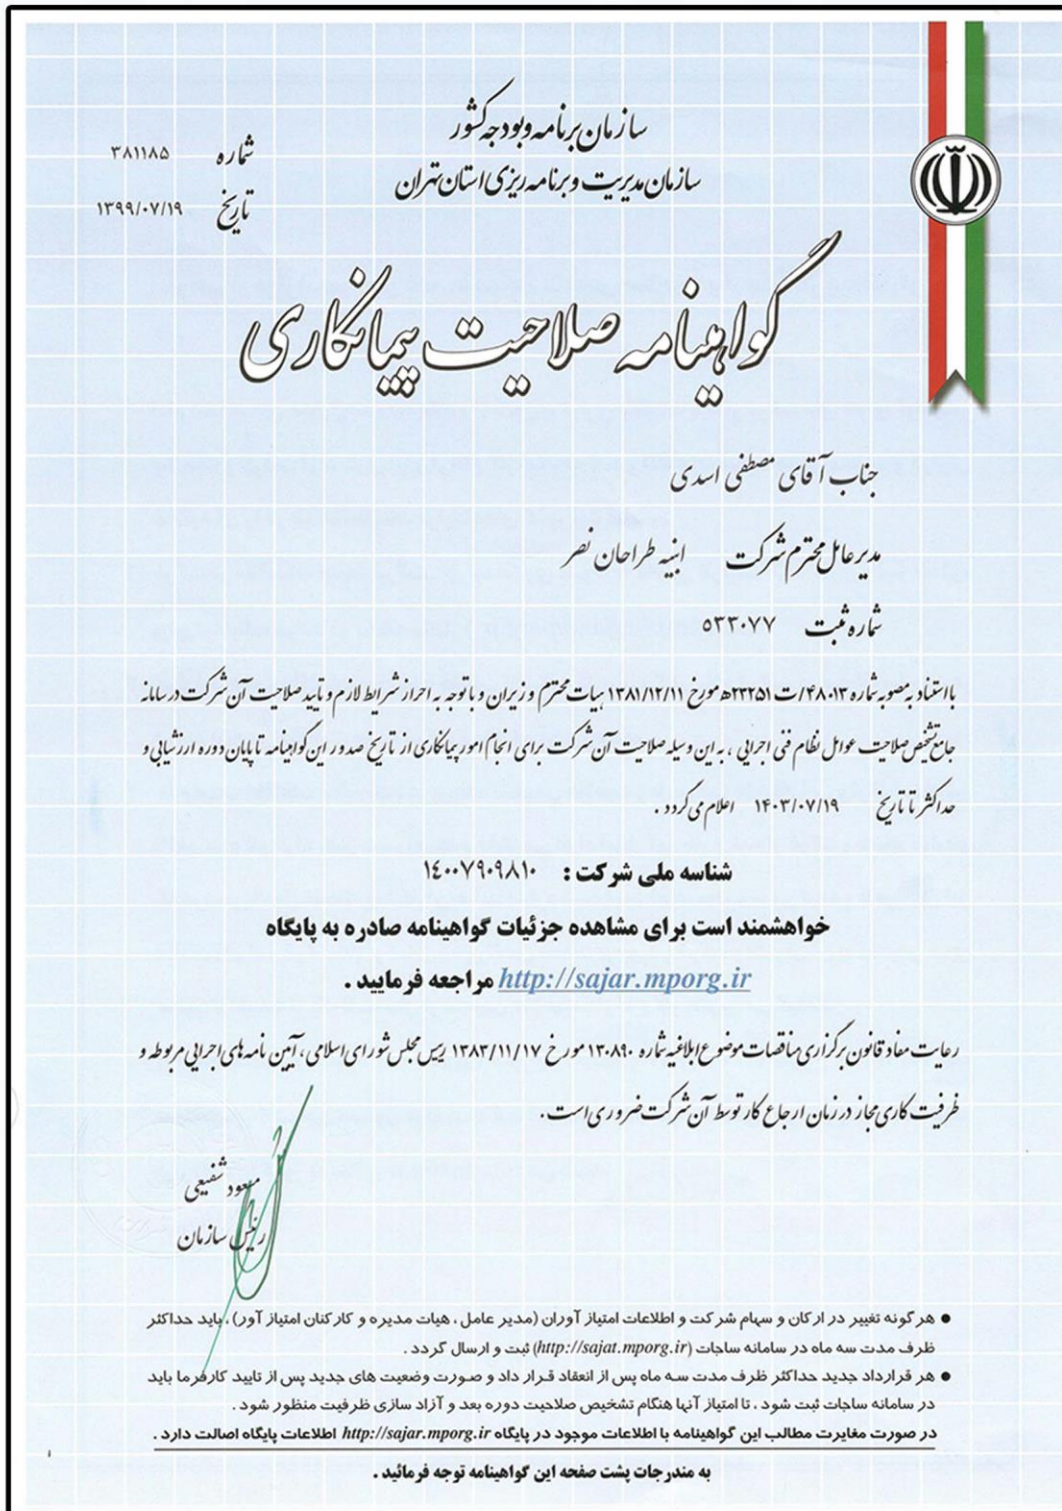 سازمان برنامه و بودجه کشور
سازمان مدیریت و برنامه ریزی استان تهران
شماره ۳۸۱۱۸۵
تاریخ ۱۳۹۹/۰۷/۱۹
گواهینامه صلاحیت پیمانکاری
جناب آقای مصطفی اسدی
مدیرعامل محترم شرکت ابنیه طراحان نصر
شماره ثبت ۵۳۳۰۷۷
با استناد به مصوبه شماره ۴۸۰۱۳/ت۲۳۲۵۱ه مورخ ۱۳۸۱/۱۲/۱۱ هیات محترم وزیران و با توجه به احراز شرایط لازم و تأیید صلاحیت آن شرکت در سامانه
جامع تشخیص صلاحیت عوامل نظام فنی اجرایی ، به این وسیله صلاحیت آن شرکت برای انجام امور پیمانکاری از تاریخ صدور این گواهینامه تا پایان دوره ارزشیابی و
حداکثر تا تاریخ ۱۴۰۳/۰۷/۱۹ اعلام می گردد .
شناسه ملی شرکت : ۱٤۰۰۷۹۰۹۸۱۰
خواهشمند است برای مشاهده جزئیات گواهینامه صادره به پایگاه
http://sajar.mporg.ir مراجعه فرمایید .
رعایت مفاد قانون برگزاری مناقصات موضوع ابلاغیه شماره ۱۳۰۸۹۰ مورخ ۱۳۸۳/۱۱/۱۷ رییس مجلس شورای اسلامی ، آیین نامه های اجرایی مربوطه و
ظرفیت کاری مجاز در زمان ارجاع کار توسط آن شرکت ضروری است .
مسعود شفیعی
رئیس سازمان
● هر گونه تغییر در ارکان و سهام شرکت و اطلاعات امتیاز آوران (مدیر عامل ، هیات مدیره و کارکنان امتیاز آور) ، باید حداکثر
ظرف مدت سه ماه در سامانه ساجات (http://sajat.mporg.ir) ثبت و ارسال گردد .
● هر قرارداد جدید حداکثر ظرف مدت سه ماه پس از انعقاد قرار داد و صورت وضعیت های جدید پس از تایید کارفرما باید
در سامانه ساجات ثبت شود ، تا امتیاز آنها هنگام تشخیص صلاحیت دوره بعد و آزاد سازی ظرفیت منظور شود .
در صورت مغایرت مطالب این گواهینامه با اطلاعات موجود در پایگاه http://sajar.mporg.ir اطلاعات پایگاه اصالت دارد .
به مندرجات پشت صفحه این گواهینامه توجه فرمائید .